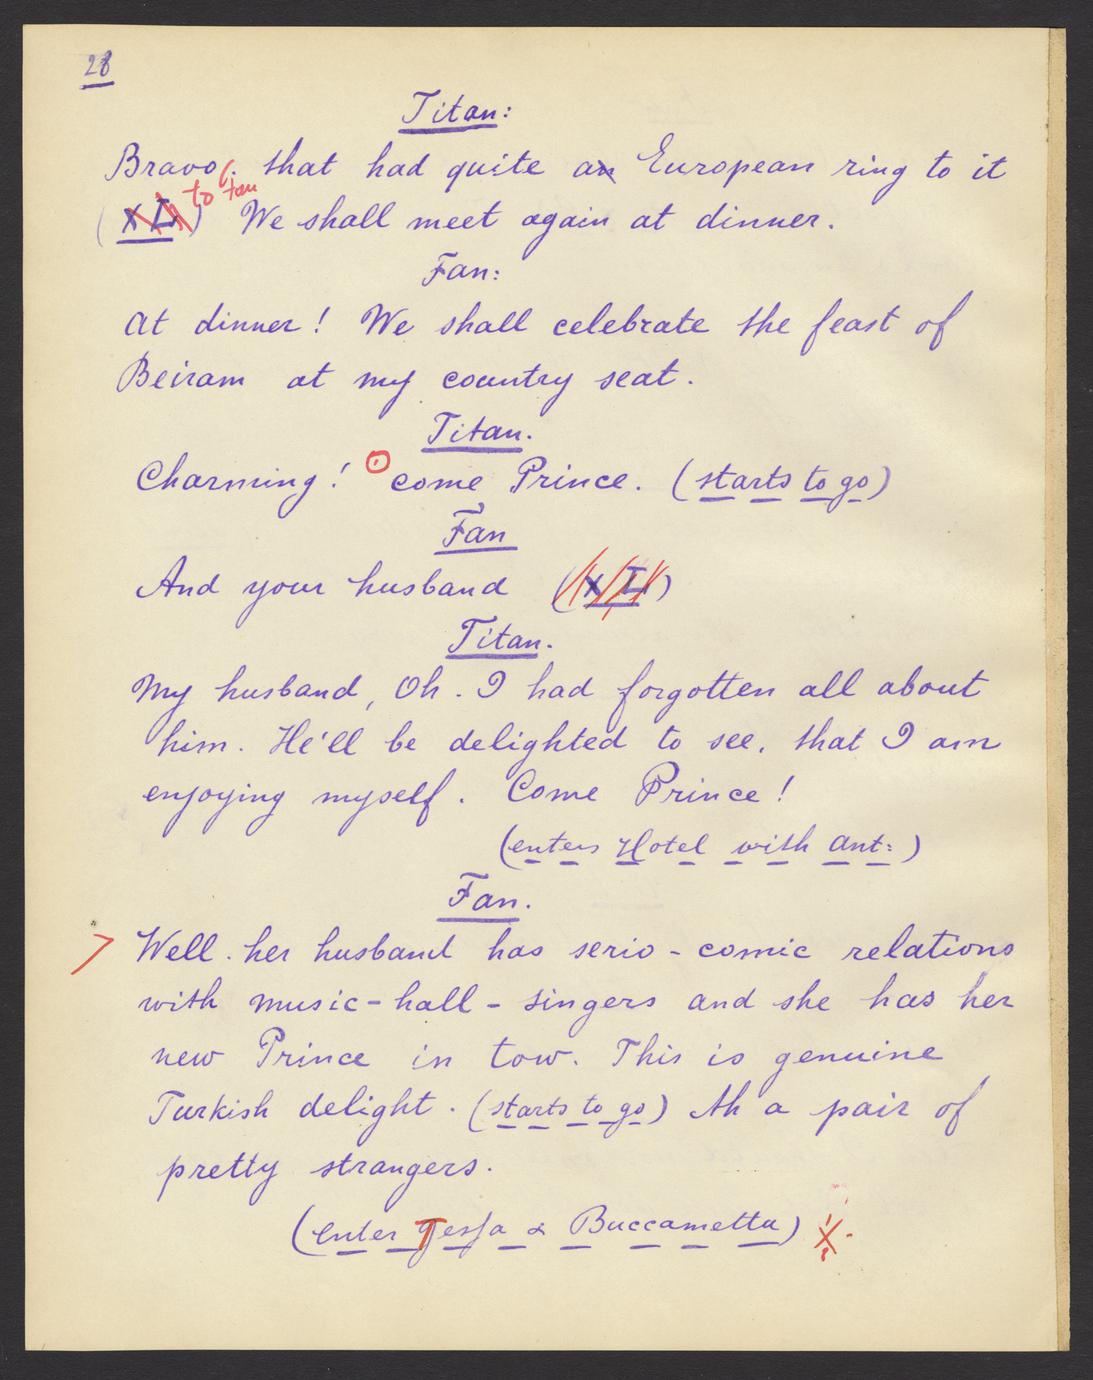 28
Titan:
Bravo. that had quite an European ring to it
(X L) to Fan We shall meet again at dinner.
Fan:
At dinner! We shall celebrate the feast of
Beiram at my country seat.
Titan.
Charming! come Prince. (starts to go)
Fan
And your husband (X L)
Titan.
My husband, Oh. I had forgotten all about
him. He'll be delighted to see, that I am
enjoying myself. Come Prince!
(enters Hotel with Ant:)
Fan.
Well. her husband has serio-comic relations
with music-hall-singers and she has her
new Prince in tow. This is genuine
Turkish delight. (starts to go) Ah a pair of
pretty strangers.
(enter Tessa & Buccametta) X